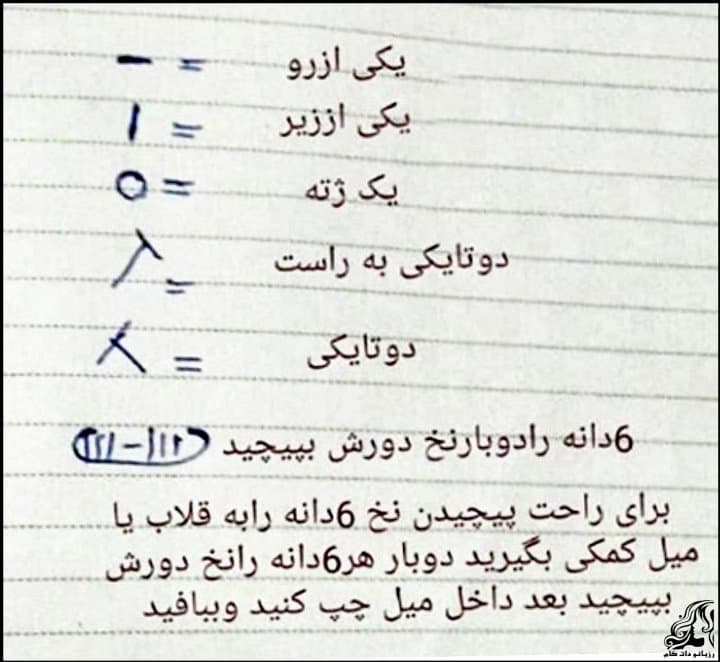 یکی ازرو = –
یکی اززیر = ا
یک ژته = O
دوتایکی به راست =
دوتایکی =
6دانه رادوبارنخ دورش بپیچید
برای راحت پیچیدن نخ 6دانه رابه قلاب یا
میل کمکی بگیرید دوبار هر6دانه رانخ دورش
بپیچید بعد داخل میل چپ کنید وببافید
رزبانو دات کام